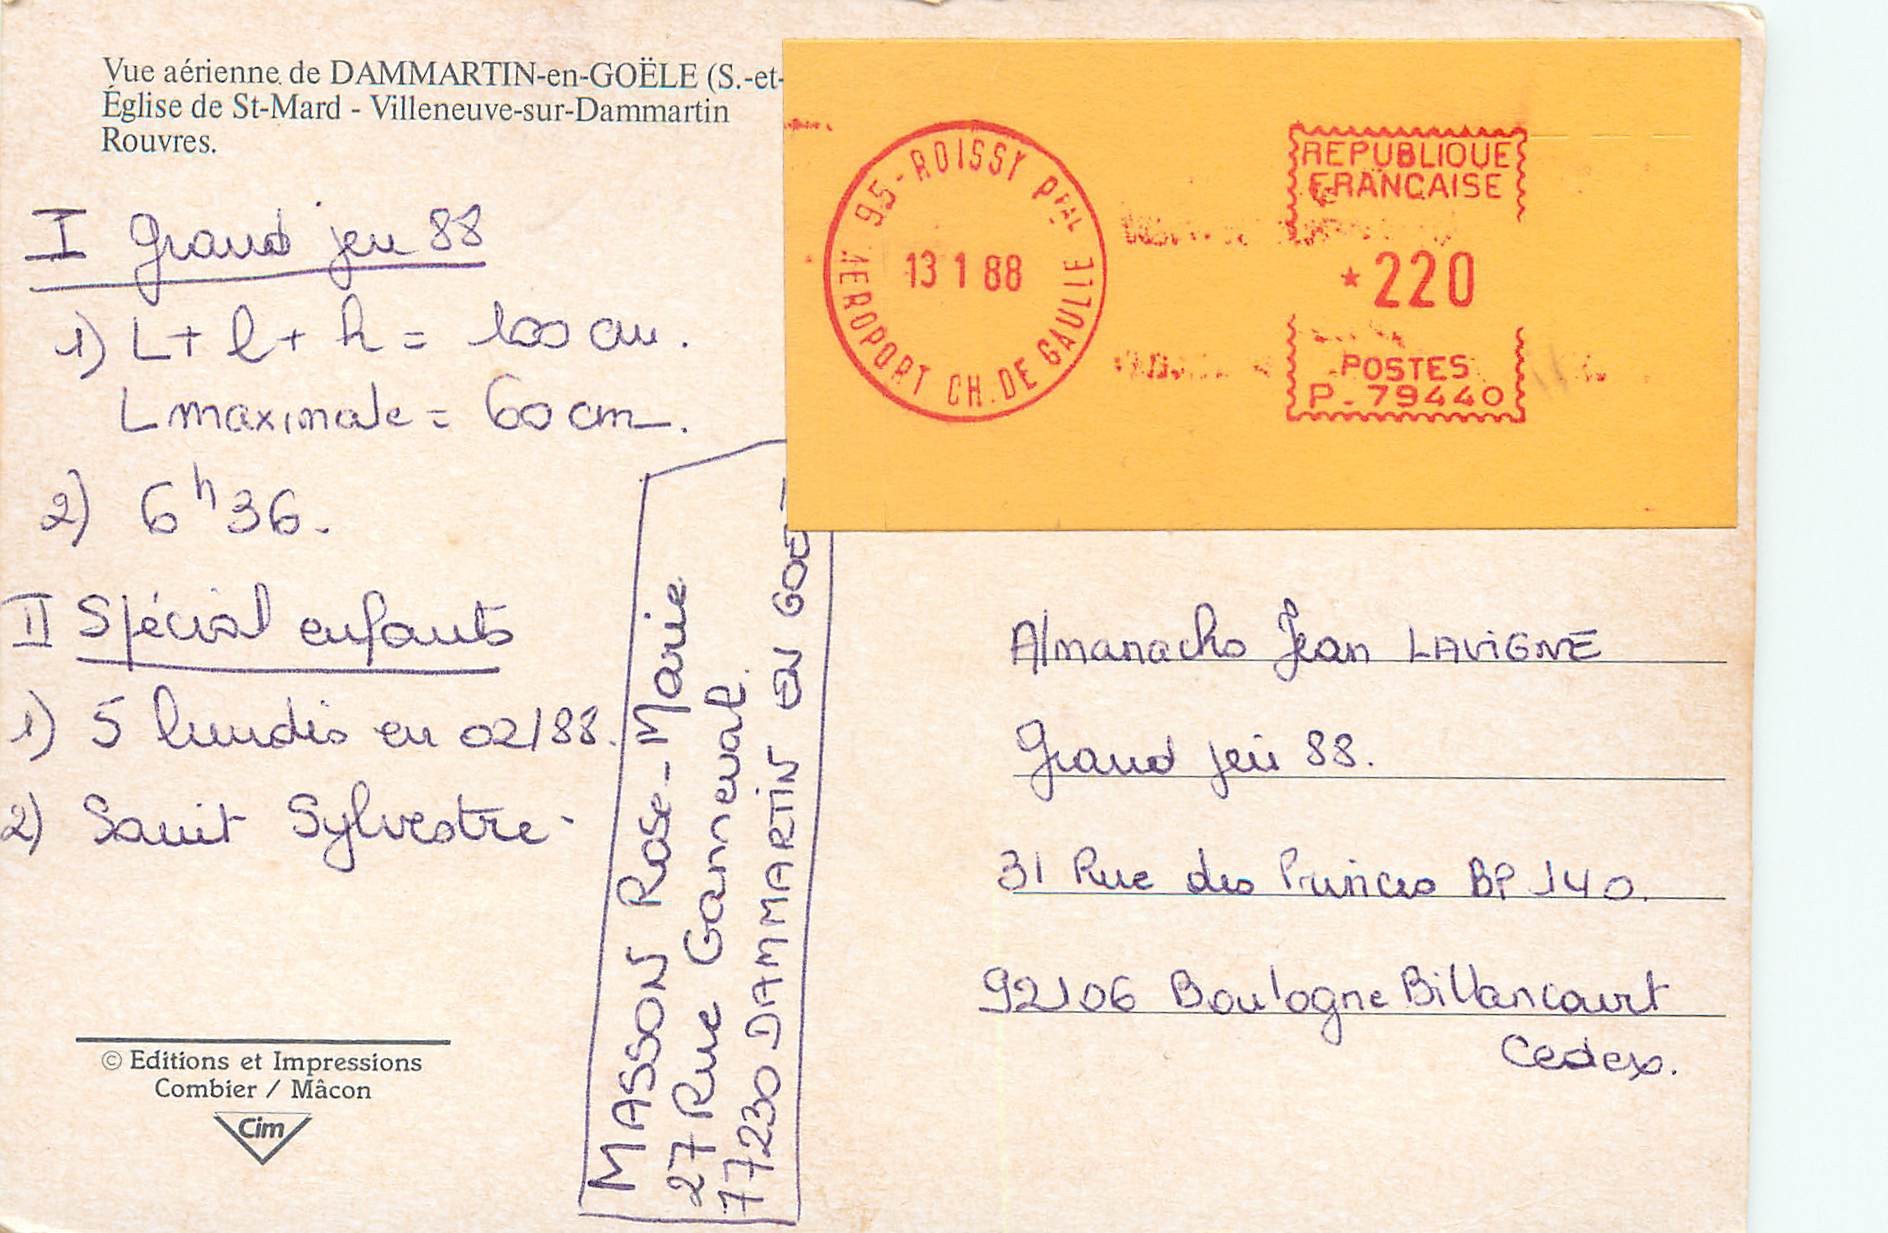 Vue aérienne de DAMMARTIN-en-GOËLE (S.-et-
Église de St-Mard - Villeneuve-sur-Dammartin
Rouvres.
I Grand jeu 88
1) L + l + h = 100 cm.
L maximale = 60 cm.
2) 6h36.
II Spécial enfants
1) 5 lundis en 02/88.
2) Saint Sylvestre.
© Editions et Impressions
Combier / Mâcon
Cim
MASSON Rose-Marie
27 Rue Ganneval
77230 DAMMARTIN EN GOE
95-ROISSY PPAL
AEROPORT CH. DE GAULLE
13 1 88
REPUBLIQUE
FRANCAISE
*220
POSTES
P. 79440
Almanachs Jean LAVIGNE
Grand jeu 88.
31 Rue des Princes BP 140.
92106 Boulogne Billancourt
Cedex.